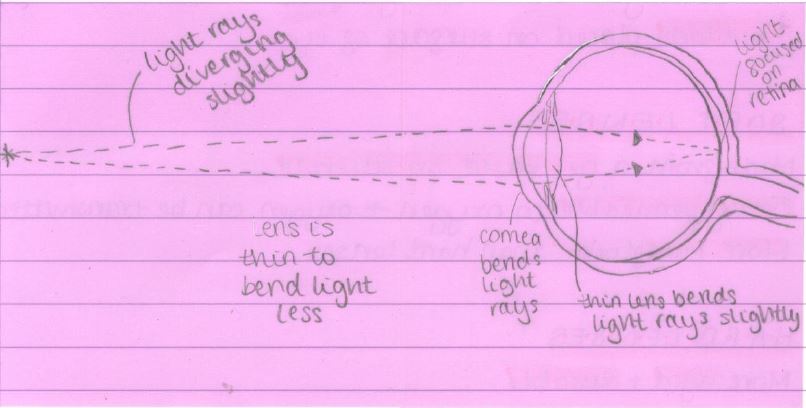 light rays
diverging
slightly
light
focused
on
retina
ens is
thin to
bend light
less
cornea
bends
light
rays
thin lens bends
light rays slightly